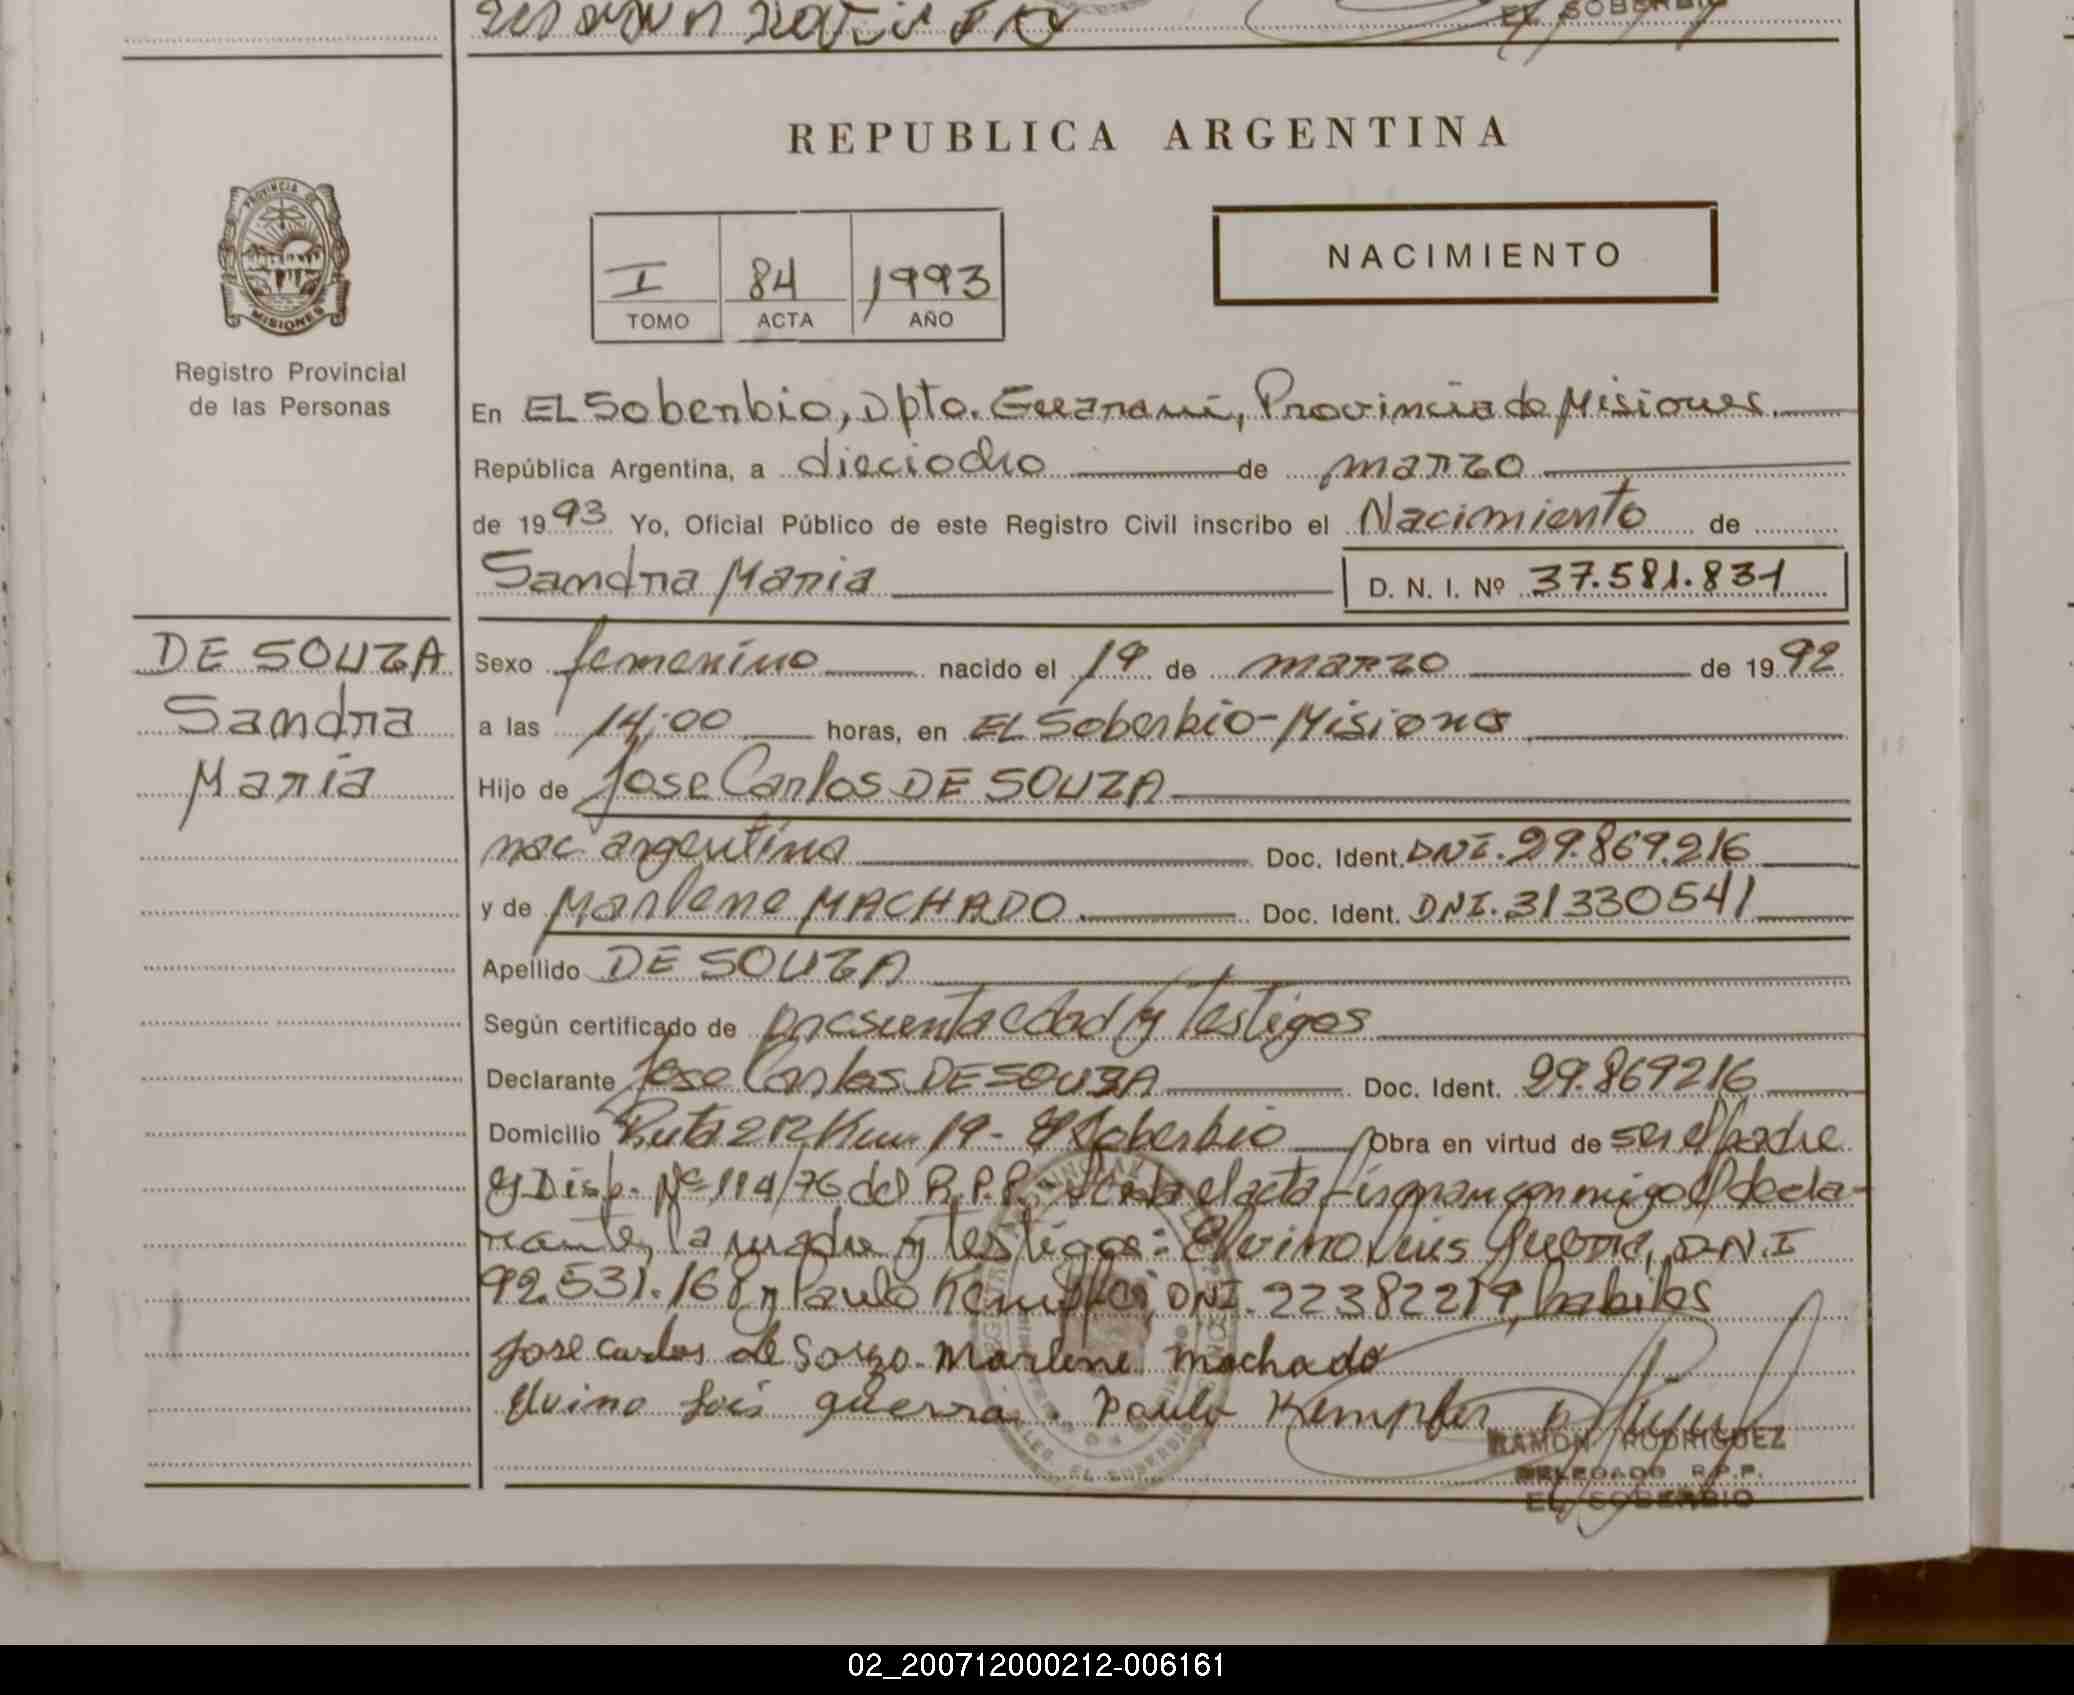 EL SOBERBIO
REPUBLICA ARGENTINA
PROVINCIA DE
MISIONES
NACIMIENTO
I 84 1993
TOMO ACTA AÑO
Registro Provincial
de las Personas
En EL Soberbio, Dpto. Guarani, Provincia de Misiones.
República Argentina, a dieciocho de marzo
de 1993 Yo, Oficial Público de este Registro Civil inscribo el Nacimiento de
Sandra Maria D. N. I. Nº 37.581.831
DE SOUZA
Sandra
Maria
Sexo femenino nacido el 19 de marzo de 1992
a las 14:00 horas, en EL Soberbio-Misiones
Hijo de Jose Carlos DE SOUZA
nac argentina Doc. Ident. DNI. 29.869.216
y de Marlene MACHADO Doc. Ident. DNI. 31330541
Apellido DE SOUZA
Según certificado de presunta edad y testigos
Declarante Jose Carlos DE SOUZA Doc. Ident. 29.869216
Domicilio Ruta 212 Km 19 - El Soberbio Obra en virtud de ser el padre
y Disp. Nº 114/76 del R.P.P. el acta firman conmigo el decla-
rante, la madre y testigos: Elvino Luis Guerra, D.N.I
92.531.168 y Paulo Kempfer, DNI. 22382219, habiles
Jose carlos de Souza Marlene machado
Elvino Luis guerra. Paulo Kempfer
RAMON RODRIGUEZ
DELEGADO R.P.P.
EL SOBERBIO
02_200712000212-006161